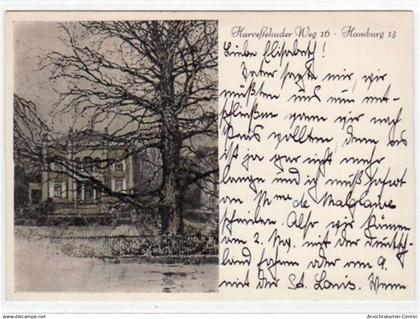 Harvestehuder Weg 16 - Hamburg 13
Liebe Elisabeth!
Vater sagte mir, wir
müßten uns nun ent-
schließen wann wir nach
Haus wollten, denn es
ist ja gar nicht mehr
lange und ich muß sofort
an Mme de
schreiben. Also wir können
am 2. Aug. mit der Deutsch-
land fahren oder am 9.
mit der St. Louis. Wenn
Ansichtskarten-Center